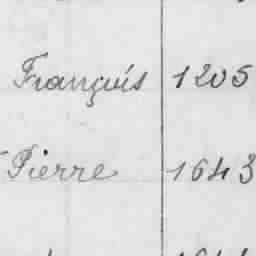 François 1205
Pierre 1643